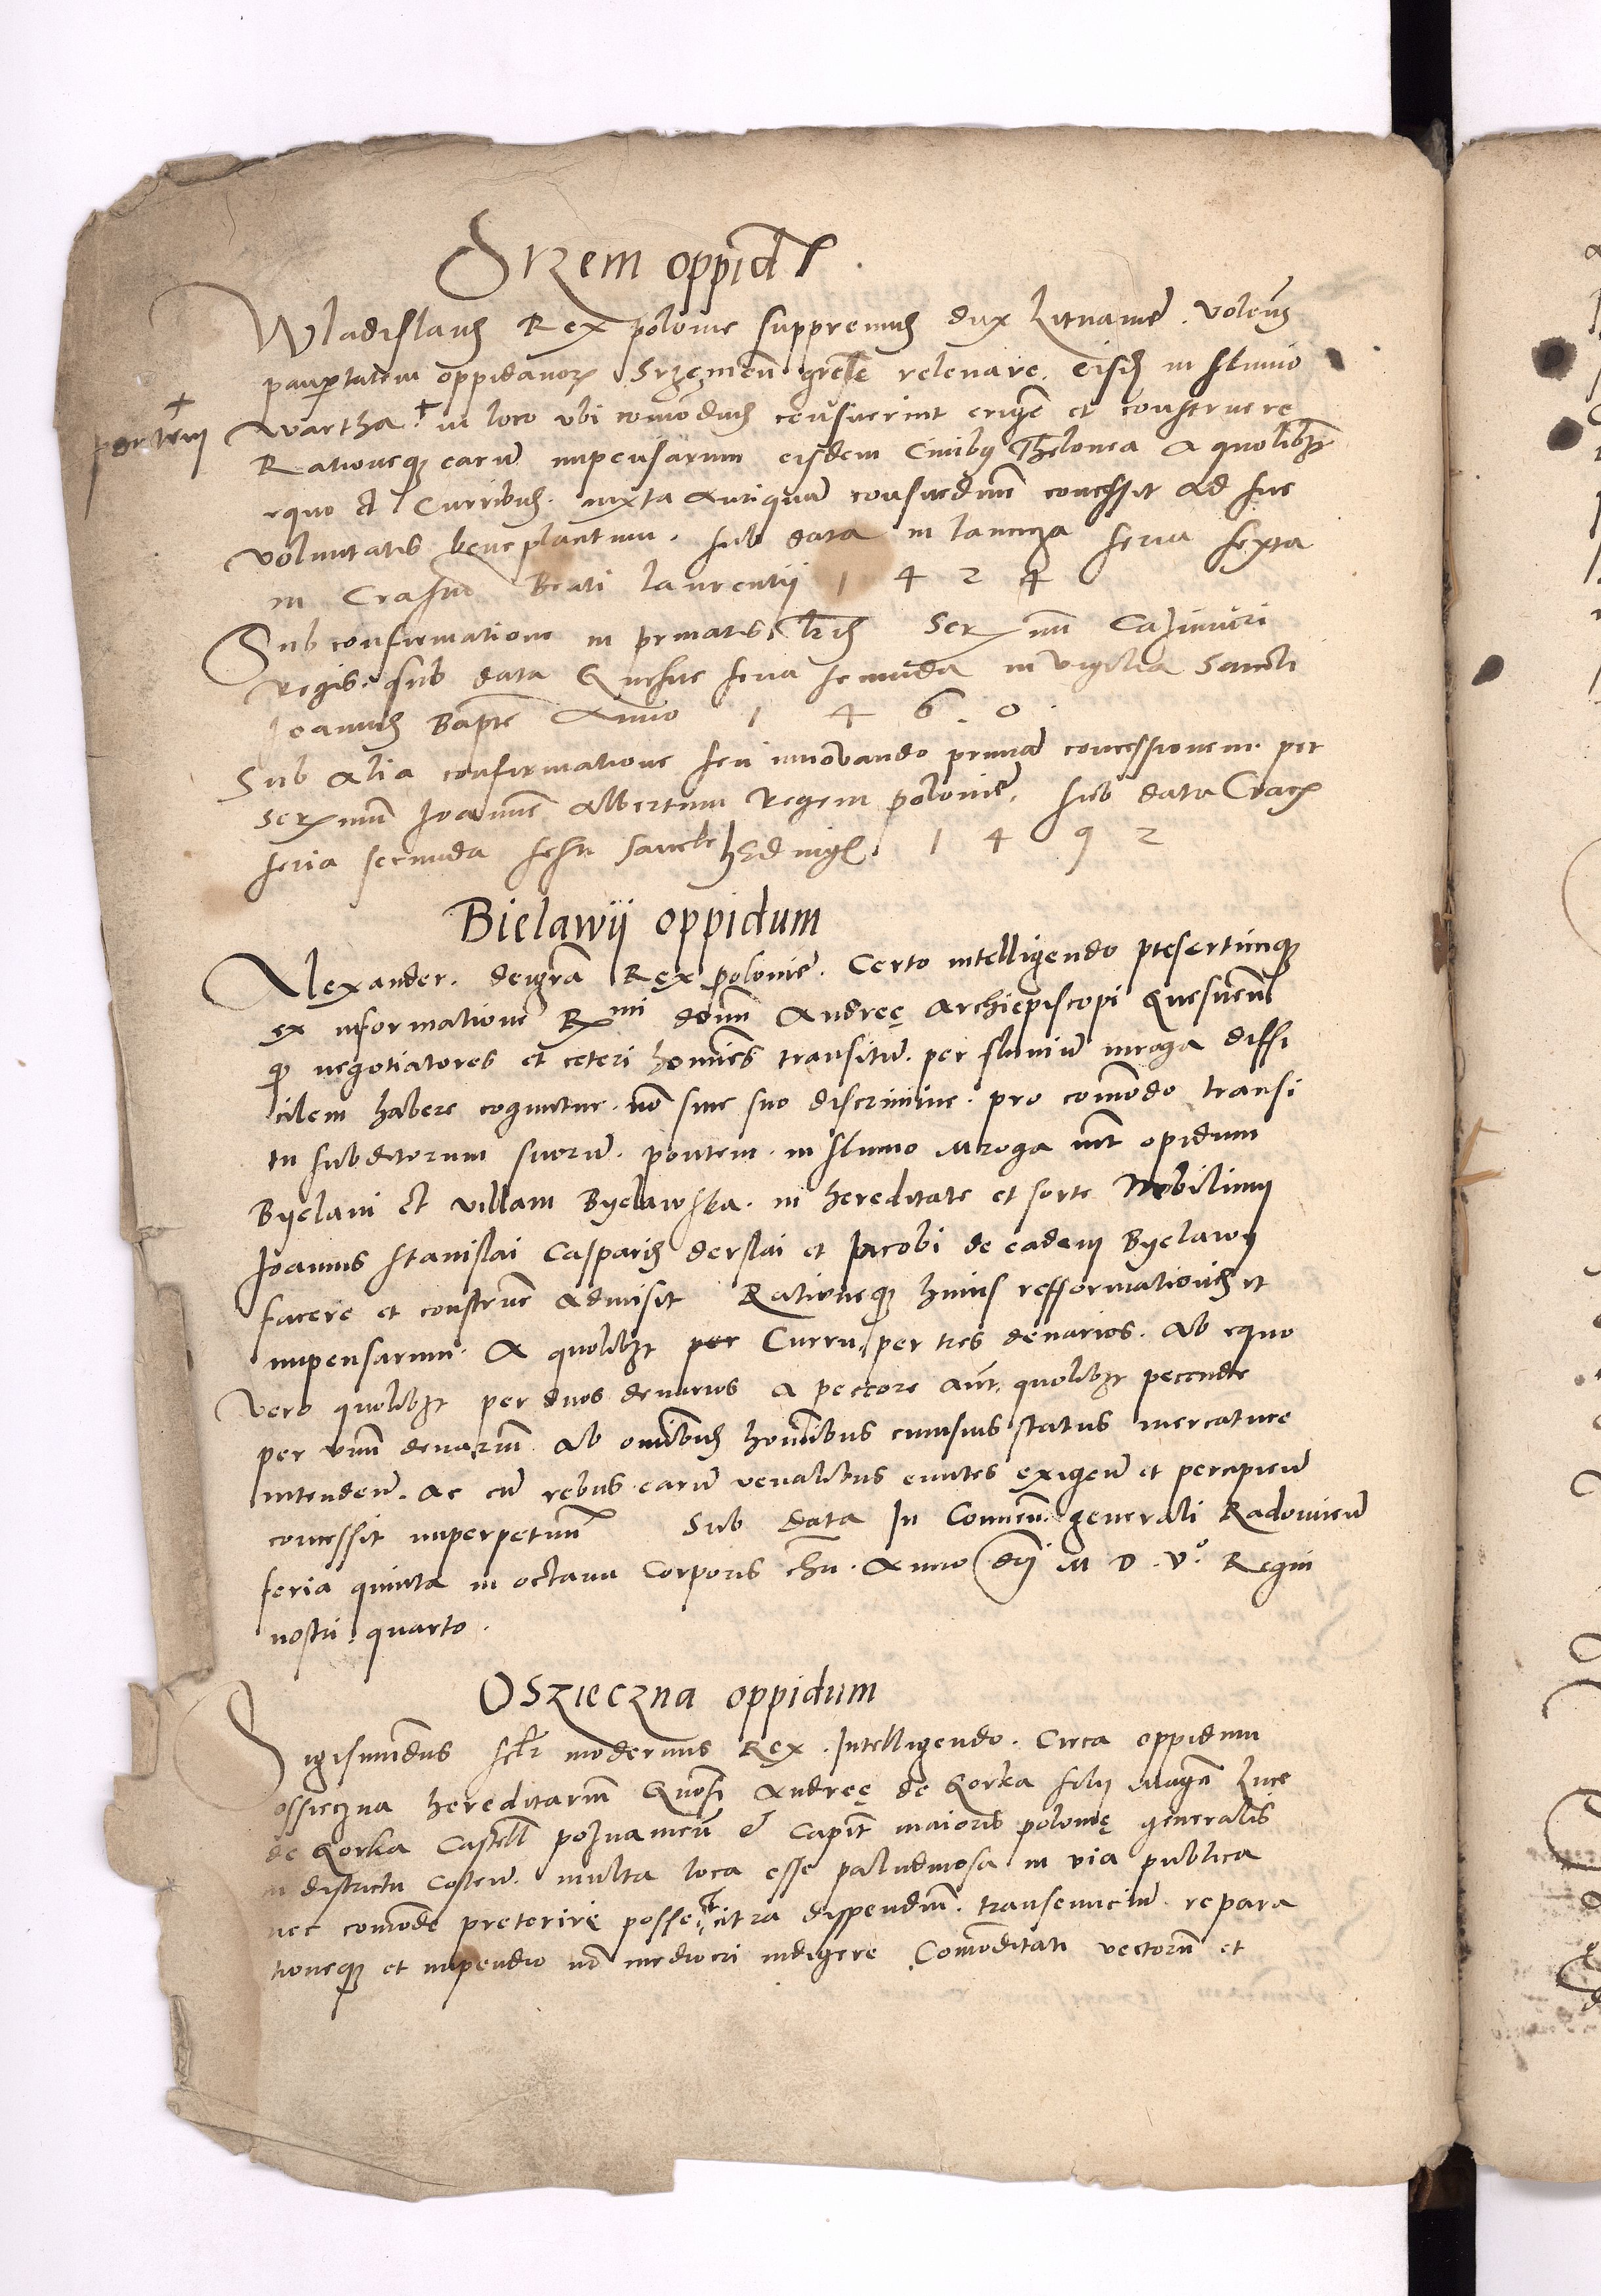 Srzem oppid
Wladislaus Rex polonie suppremus dux Lituanie. Volens
paupertatem oppidanorum Srzemen gratiose relevare. eisdem in fluvio
Wartha + in loco ubi comodius censuerint erigere et construere
+ pontem
Rationeque earum impensarum eisdem Civibus Thelonea A quolibet
equo et Curribus. iuxta Antiquam consuetudinem concessit Ad sue
voluntatis beneplacitum. sub data in lancicza feria sexta
in Crastino Beati laurentii 1 4 2 4
Sub confirmatione in privatis literis Serenissimi Cazimiri
Regis. sub data Gnesne feria secunda in vigilia Sancti
Joannis Baptiste Anno 1 4 6. 0.
Sub Alia confirmatione seu innovando primam concessionem per
Serenissimum Joannem Albertum Regem polonie. sub data Crac
feria secunda festi sancte Hedvigis 1 4 9 2
Bielawÿ oppidum
Alexander. dei gratia Rex polonie. Certo intelligendo presertimque
ex informatione Rmi domini Andreę Archiepiscopi Gnesnen
quod negotiatores et ceteri homines transitum. per fluvium mroga diffi
cilem habere cognuntur. non sine suo discrimine. pro comodo transi
tu subditorum suorum. pontem. in fluvio Mroga inter opidum
Byelavi et villam Byelawska. in hereditate et sorte Nobilium
Joannis Stanislai Casparis derslai et Jacobi de eadem Byelawy
facere et construere admisit Rationeque huius refformationis et
impensarum. A quolibet per Curru per tres denarios. Ab equo
vero quolibet per duos denarios A peccore autem quolibet pecude
per unum denarium Ab omnibus hominibus cuiusvis status mercature
intenden. Ac cum rebus earum venalibus euntes exigen et percipien
concessit imperpetuum Sub data In Conven. generali Radomien
feria quinta in octava Corporis christi. Anno dni M D. Vº. Regni
nostri quarto.
Oszieczna oppidum
Sigismundus feliciter modernus Rex. Intelligendo. Circa oppidum
ossieczna hereditarium Generosi Andreę de Gorka filii Magnifici Luce
de Gorka Castell poznanien et Capit maioris polonię generalis
in districtu Costen. multa loca esse paludinosa in via publica
nec comode preterire posse citra dispendium. transeuncium. repara
tioneque et impendio non mediocri indigere Comoditati vectorum et